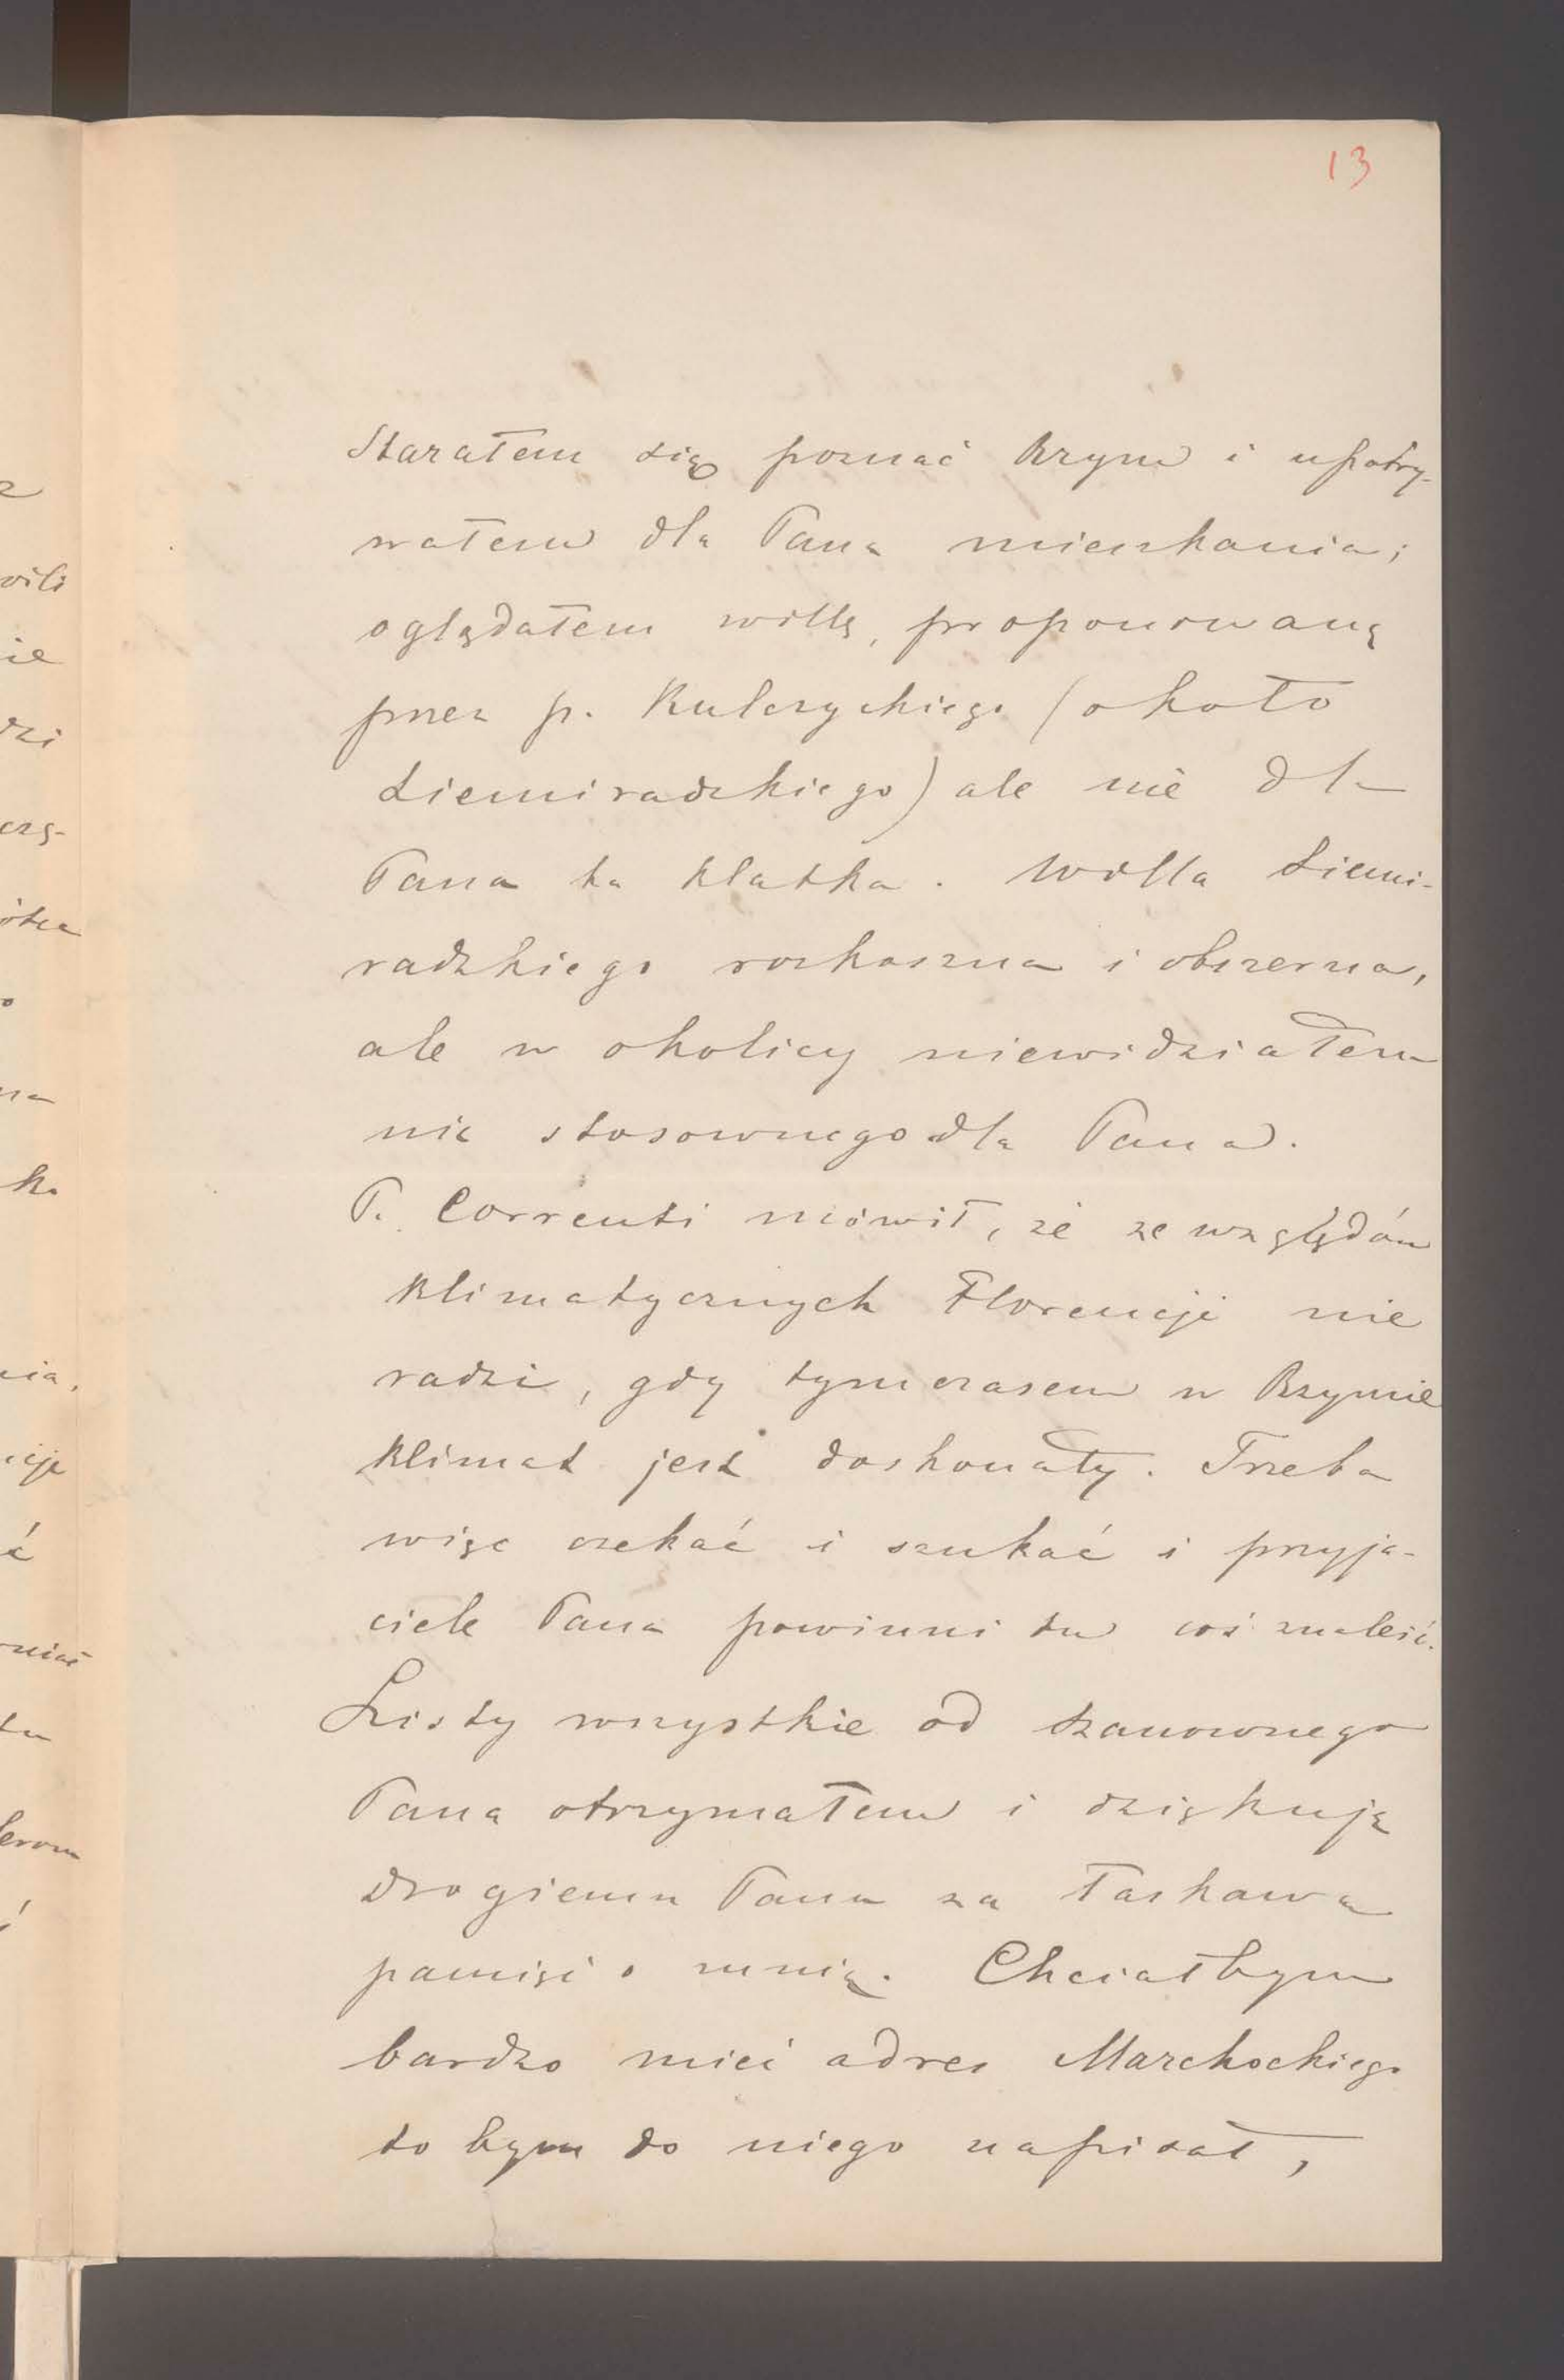 13
Starałem się poznać Rzym i upatry-
wałem dla Pana mieszkania;
oglądałem willę, proponowaną
przez p. Kulczyckiego (około
Siemiradzkiego) ale nie dla
Pana ta klatka. Willa Siemi-
radzkiego rozkoszna i obszerna,
ale w okolicy niewidziałem
nic stosownego dla Pana.
P. Correnti mówił, że ze względów
klimatycznych Florencji nie
radzi, gdy tymczasem w Rzymie
klimat jest doskonały. Trzeba
więc czekać i szukać i przyja-
ciele Pana powinni tu coś znaleść.
Listy wszystkie od szanownego
Pana otrzymałem i dziękuję
drogiemu Panu za łaskawą
pamięć o mnie. Chciałbym
bardzo mieć adres Marchockiego
to bym do niego napisał,